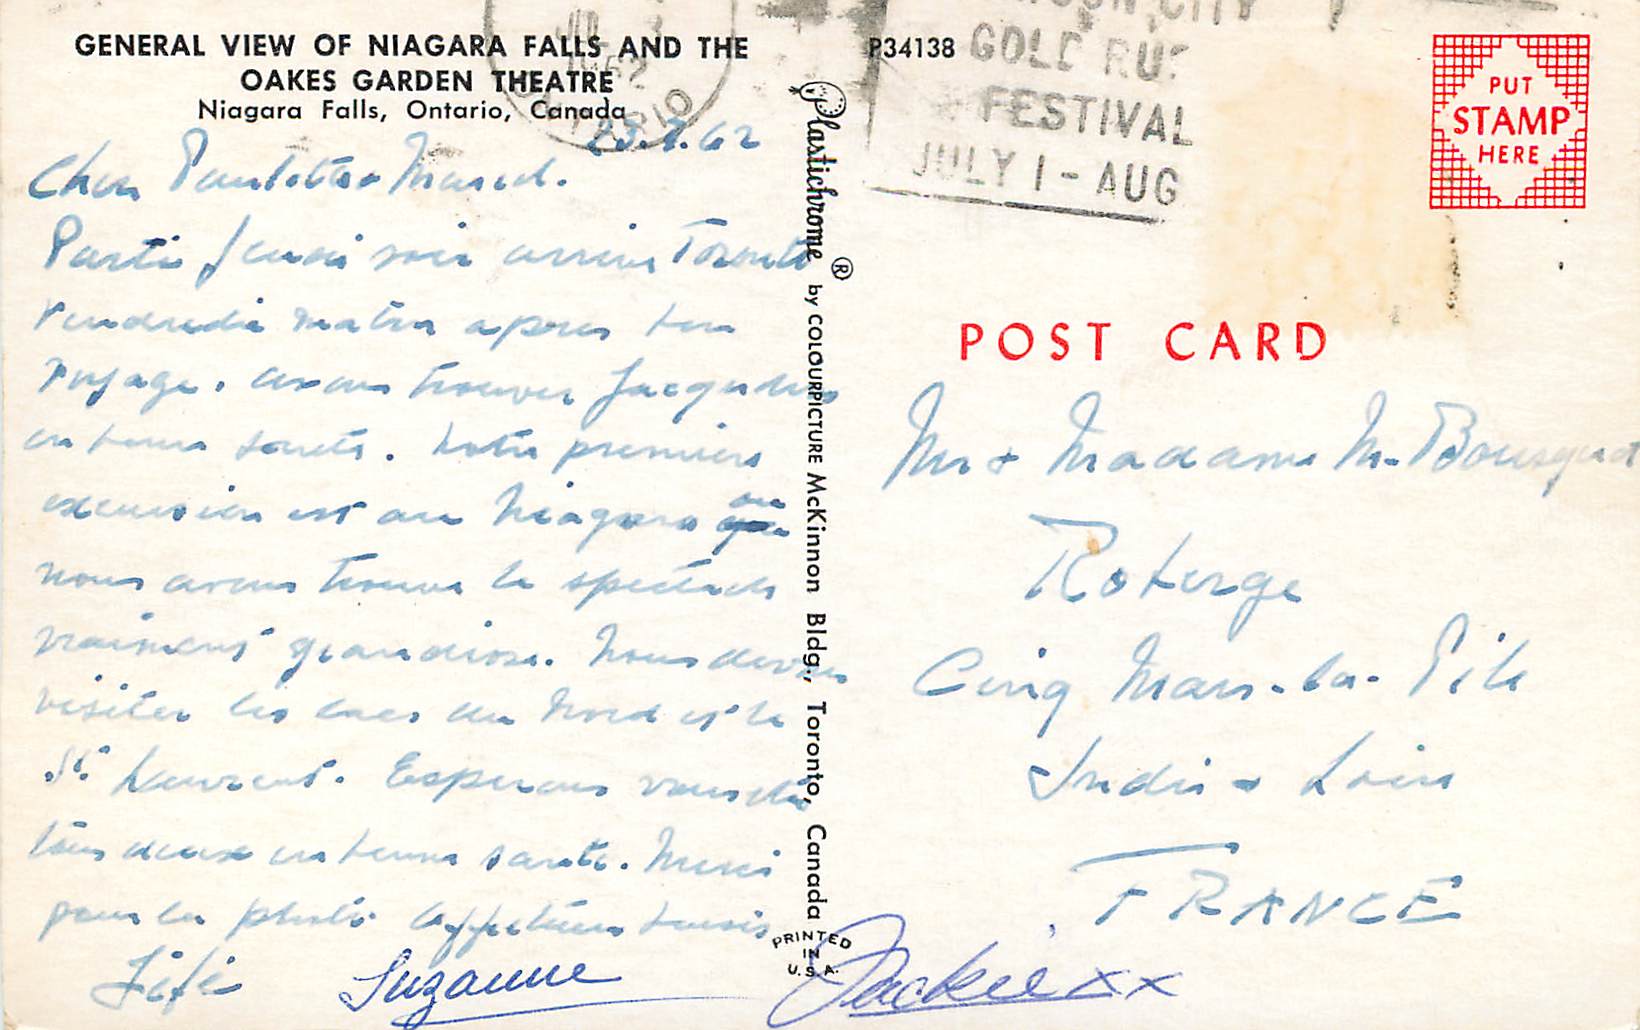 GENERAL VIEW OF NIAGARA FALLS AND THE
OAKES GARDEN THEATRE
Niagara Falls, Ontario, Canada
23.7.62
Cher Paulette & Marcel.
Partis Jeudi soir arrive Toronto
Vendredi matin apres bon
voyage. avons trouver Jacqueline
en bonne santé. Notre premiere
excursion est au Niagara ou
nous avons trouve le spectacle
vraiment grandiose. Nous devons
visiter les lacs du Nord et le
St. Laurent. Esperons vous
tous deux en bonne sante. Merci
pour la photo affectueux baisis
Fifi Suzanne Jackie xx
Plastichrome ® by COLOURPICTURE McKinnon Bldg., Toronto, Canada
PRINTED
IN
U.S.A.
P34138
JUL
1962
ONTARIO
CITY
GOLD RUS
FESTIVAL
JULY 1 - AUG
PUT
STAMP
HERE
POST CARD
Mr & Madame M. Bousquet
Roberge
Cinq Mars-la-Pile
Indre & Loire
FRANCE